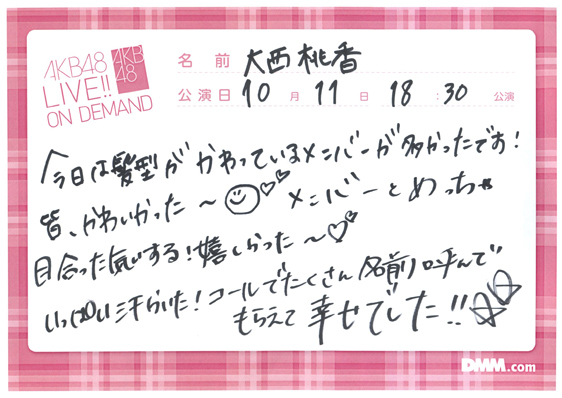 AKB48
LIVE!!
ON DEMAND
AKB
48
名前 大西桃香
公演日 10 月 11 日 18 : 30 公演
今日は髪型がかわっているメンバーが多かったです!
皆、かわいかった〜☺♡♡ メンバーとめっちゃ
目合った気がする!嬉しかった〜♡♡
いっぱい汗かいた!コールでたくさん名前呼んで
もらえて幸せでした!!☆☆
DMM.com